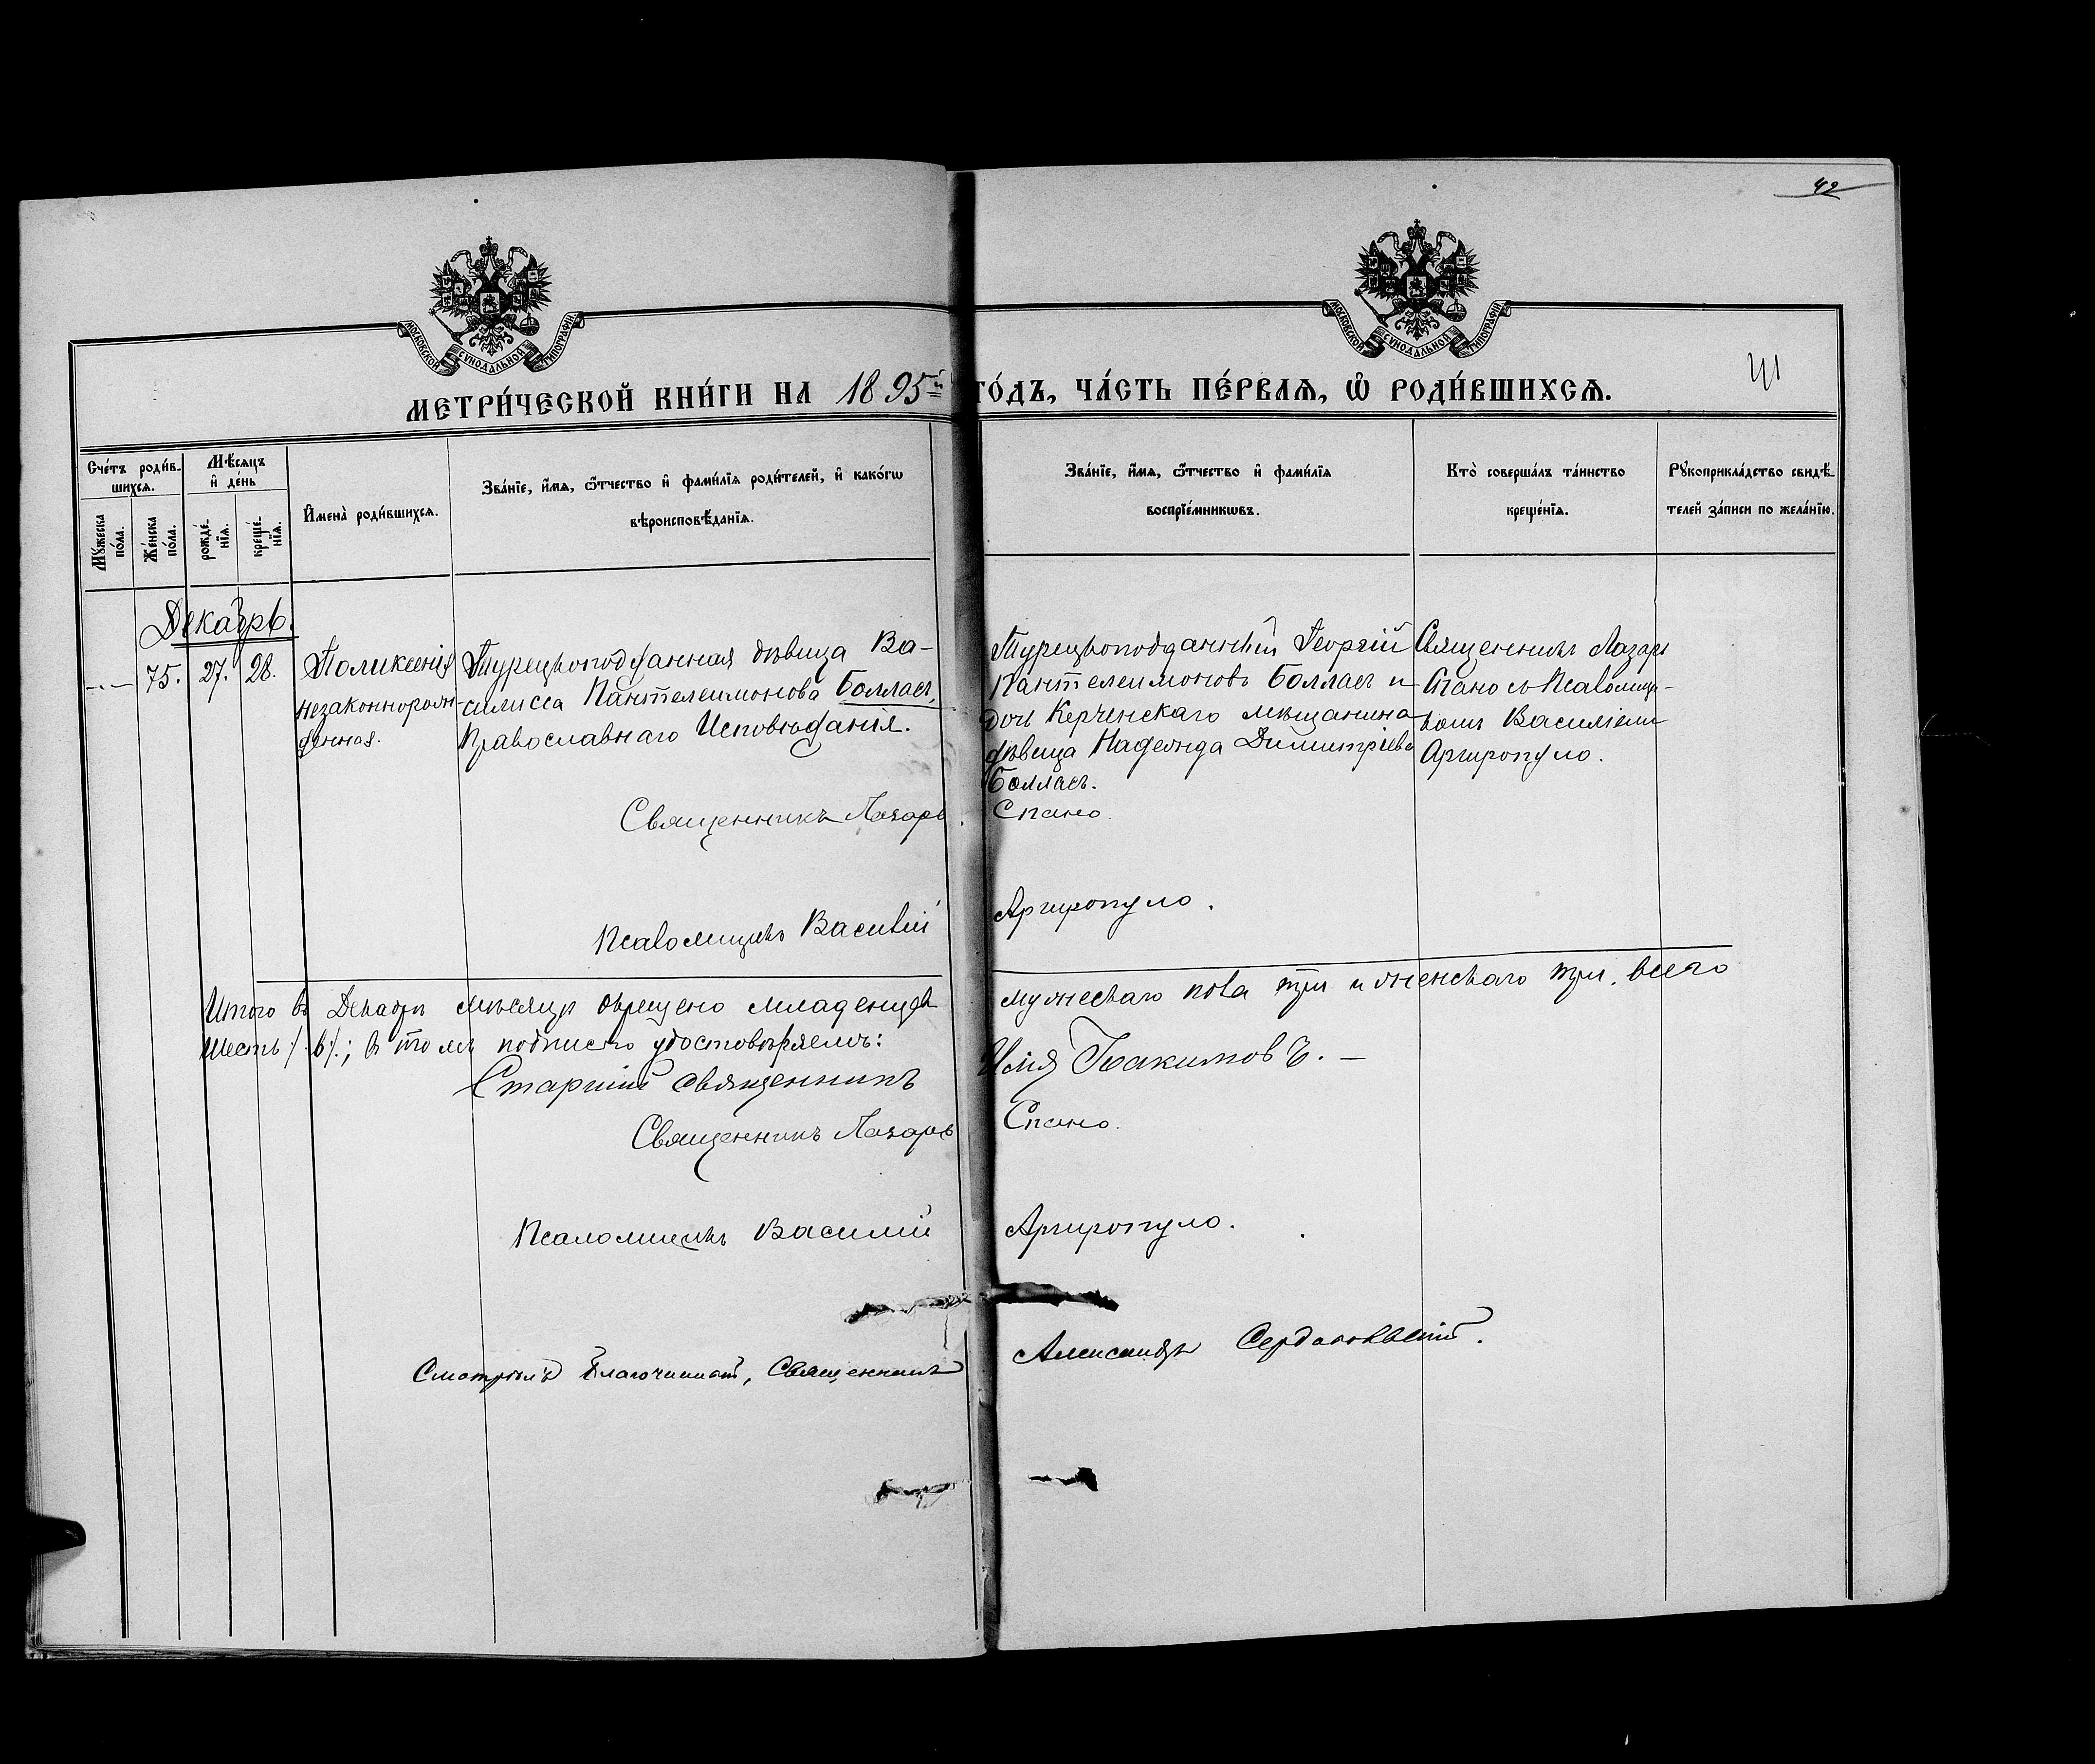 42
МОСКОВСКОЙ СѴНОДАЛЬНОЙ ТИПОГРАФІИ
МОСКОВСКОЙ СѴНОДАЛЬНОЙ ТИПОГРАФІИ
41
МЕТРИ́ЧЕСКОЙ КНИ́ГИ НА 1895й ГО́ДЪ, ЧА́СТЬ ПЕ́РВАѦ, Ѡ҆ РОДИ́ВШИХСѦ.
Сче́тъ роди́в-
шихсѧ.
Мꙋ́жеска по́ла.
Же́нска по́ла.
Мѣ́сѧцъ и҆ де́нь
рожде́-
нїѧ.
креще́-
нїѧ.
И҆мена̀ роди́вшихсѧ.
Зва́нїе, и҆́мѧ, ѻ҆́тчество и҆ фами́лїѧ роди́телей, и҆ како́гѡ
вѣроисповѣ́данїѧ.
Зва́нїе, и҆́мѧ, ѻ҆́тчество и҆ фами́лїѧ
воспрїе́мникѡвъ.
Кто̀ соверша́лъ та́инство
креще́нїѧ.
Рꙋкоприкла́дство свидѣ́-
телей за́писи по жела́нїю.
Декабрь.
75. 27. 28.
Поликсенія
незаконнорож-
денная.
Турецкоподданная дѣвица Ва-
силисса Пантелеимонова Боллась,
Православнаго Исповѣданія.
Турецкоподданный Георгій
Пантелеимоновъ Боллась и
дочь Керченскаго мѣщанина
дѣвица Надежда Димитріева
Боллась.
Священникъ Лазарь
Спано съ Псаломщи-
комъ Василіемъ
Аргиропуло.
Священникъ Лазарь Спано.
Псаломщикъ Василій Аргиропуло.
Итого въ Декабрѣ мѣсяцѣ окрещено младенцевъ мужескаго пола три и женскаго три, всего
шесть /.6/.; въ томъ подписью удостовѣряемъ:
Старшій священникъ Илія Бакимовъ. —
Священникъ Лазарь Спано.
Псаломщикъ Василій Аргиропуло.
Смотрѣлъ Благочинный, Священникъ Александръ